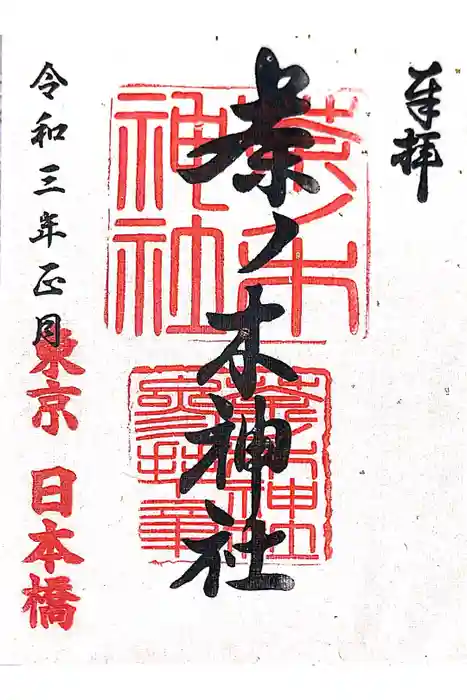 奉拝
茶ノ木神社
令和三年正月
東京 日本橋
茶ノ木
神社
茶ノ木神社